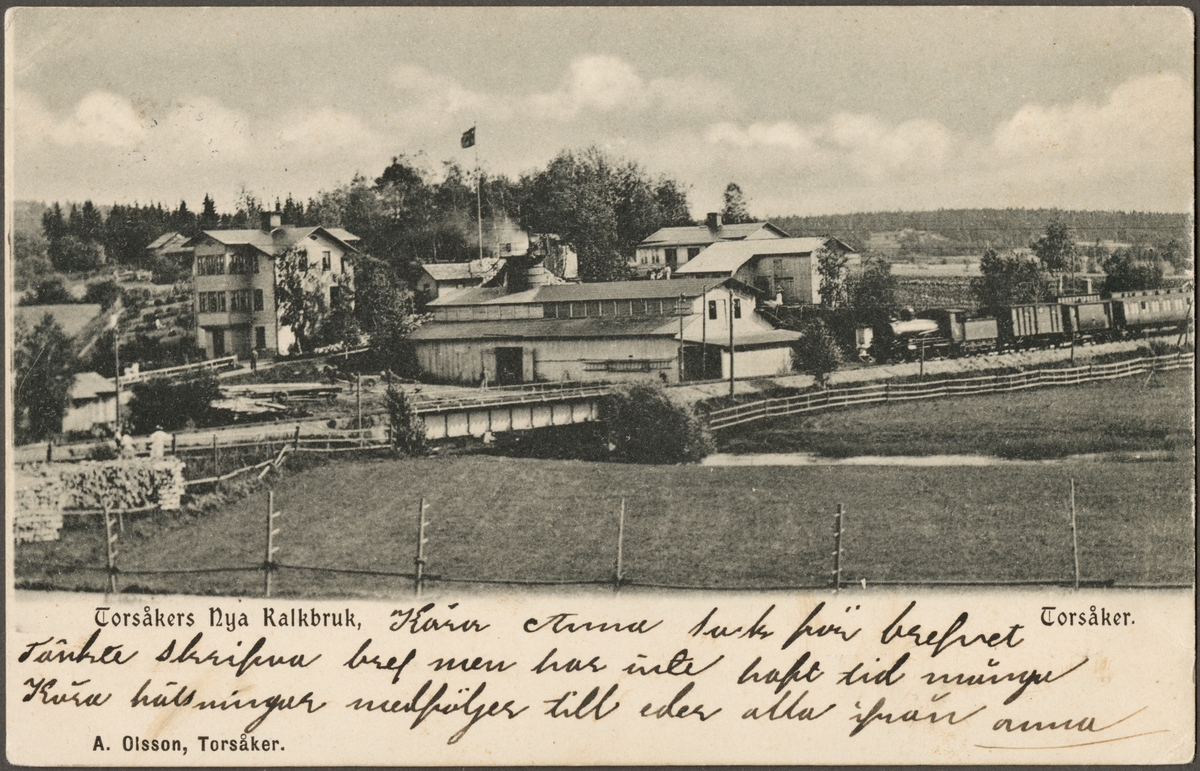 Torsåkers Nya Kalkbruk, Kära Anna tack för brefvet Torsåker.
Tänkte skrifva bref men har inte haft tid många
Kära hälsningar medföljer till eder alla ifrån anna
A. Olsson, Torsåker.